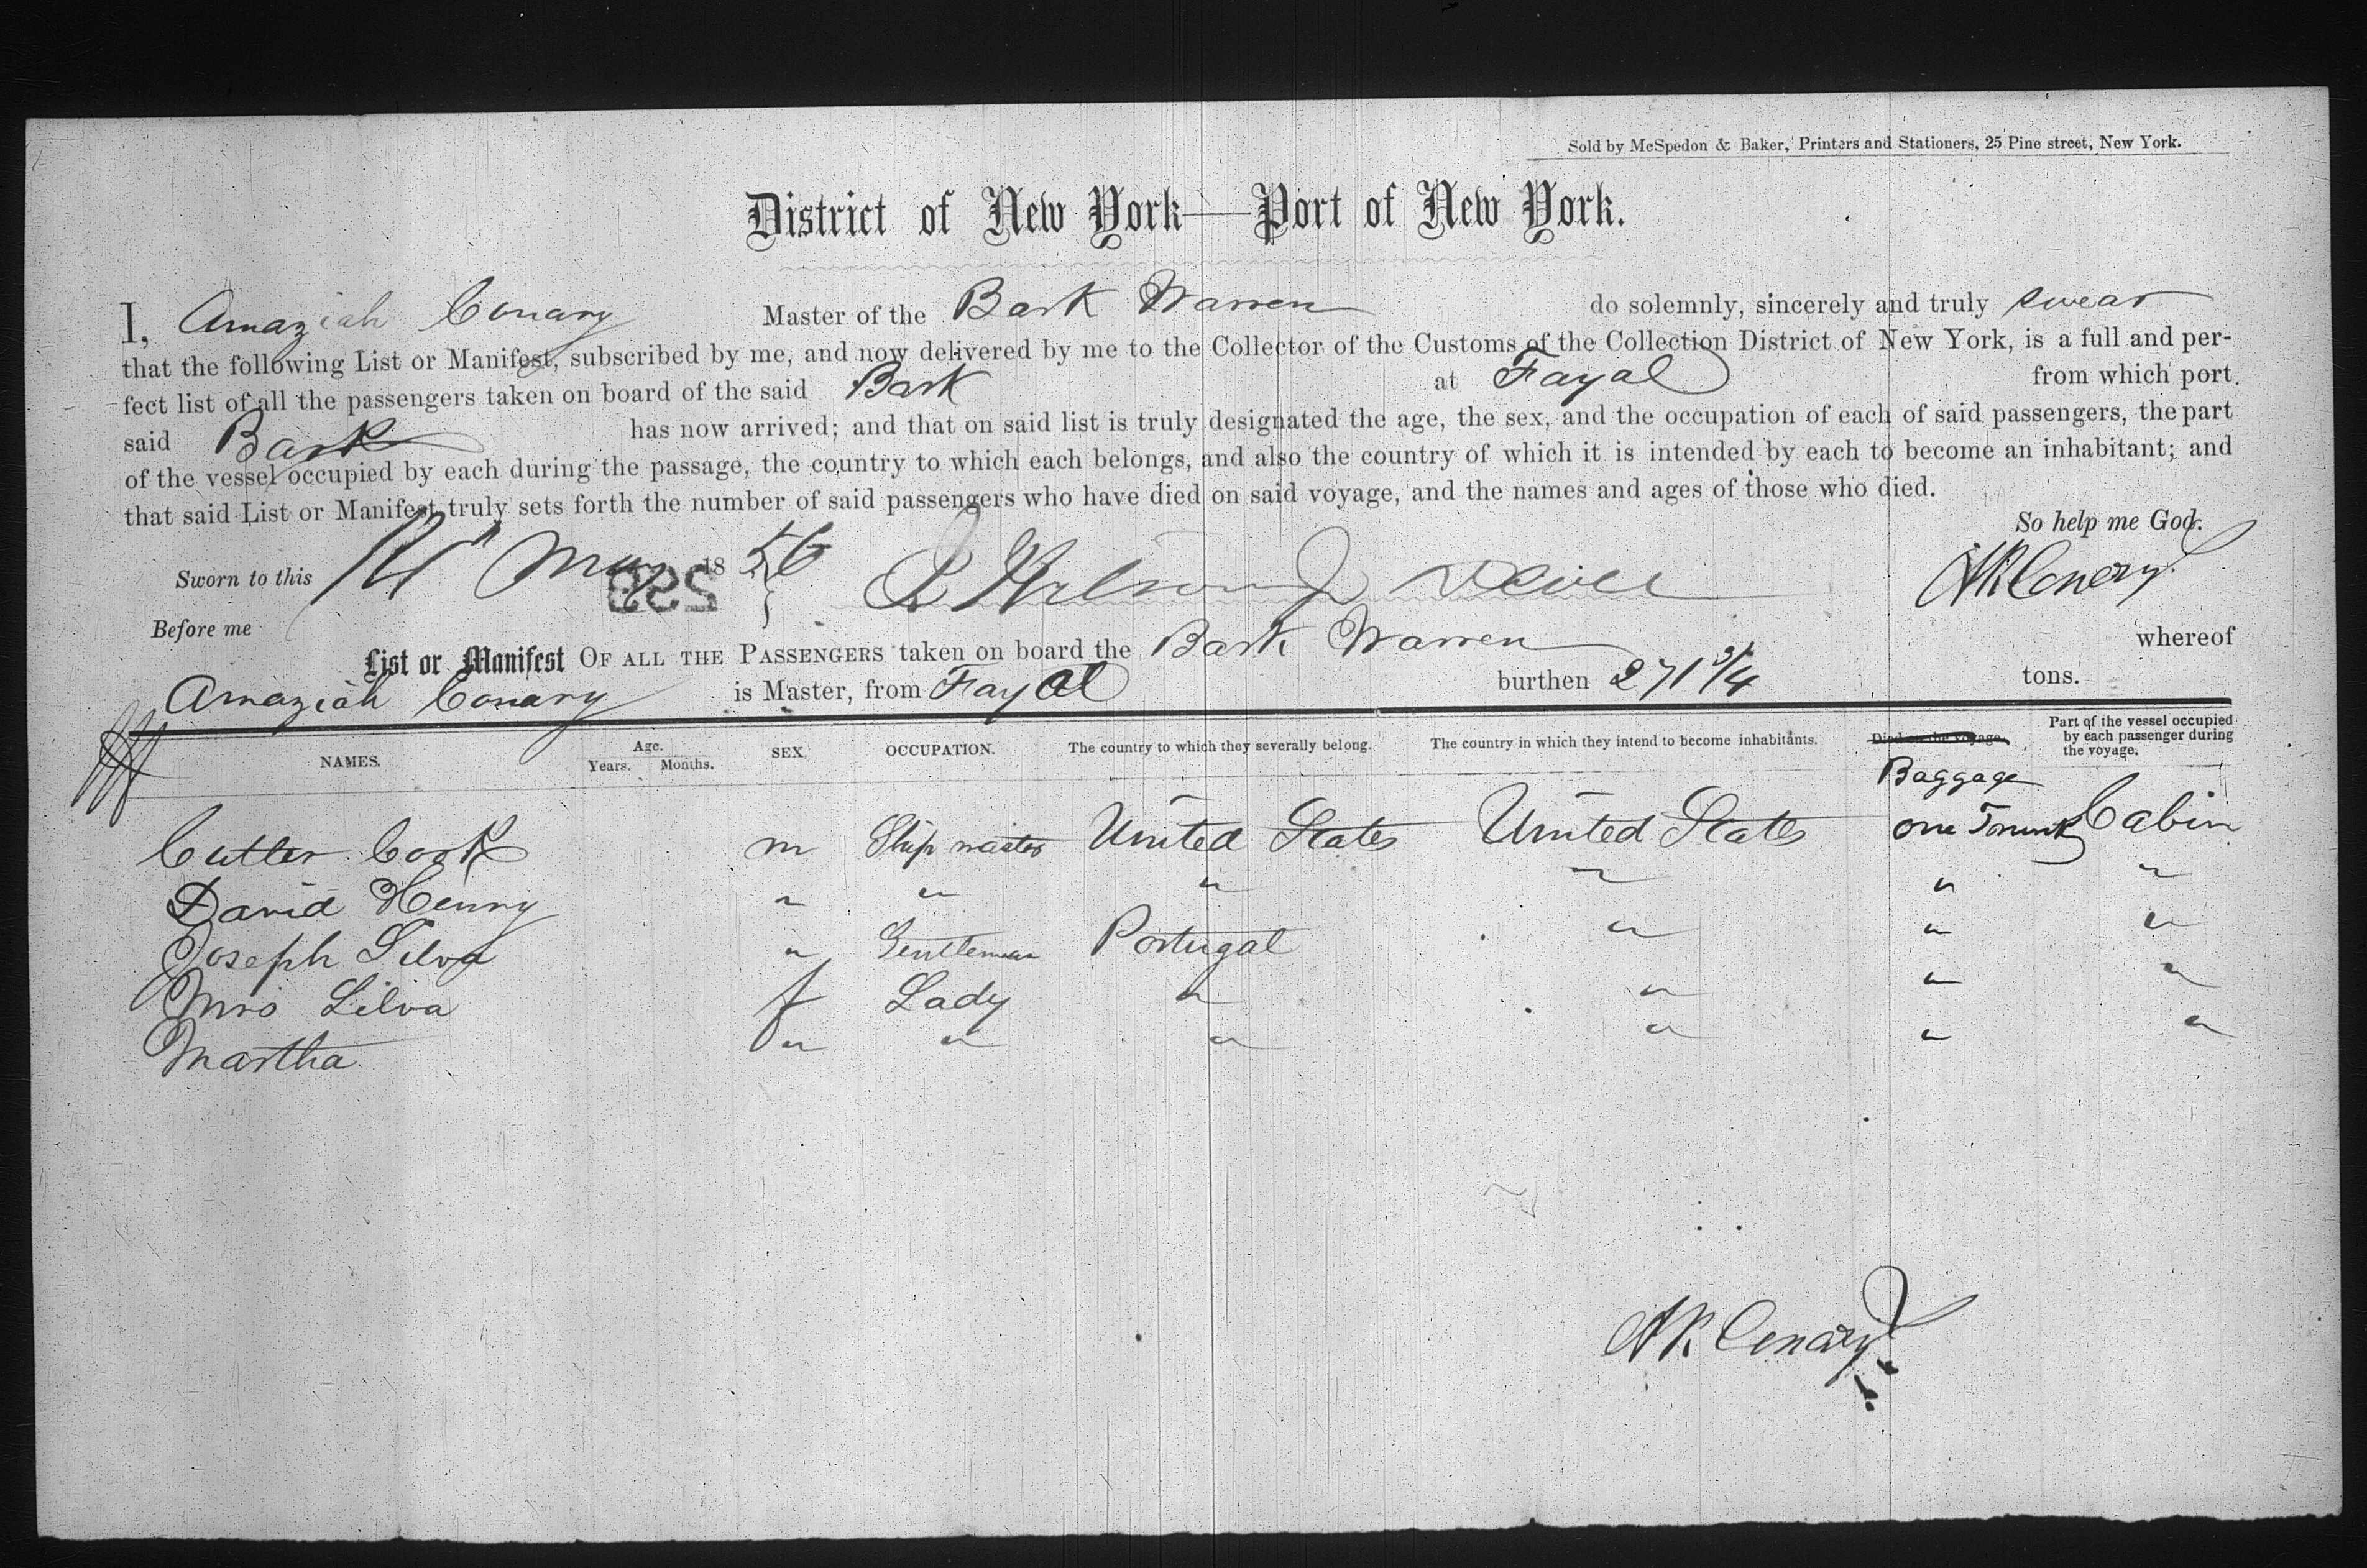 Sold by McSpedon & Baker, Printers and Stationers, 25 Pine street, New York.
District of New York—Port of New York.
I, Amaziah Conary Master of the Bark Warren do solemnly, sincerely and truly swear
that the following List or Manifest, subscribed by me, and now delivered by me to the Collector of the Customs of the Collection District of New York, is a full and per-
fect list of all the passengers taken on board of the said Bark at Fayal from which port
said Bark has now arrived; and that on said list is truly designated the age, the sex, and the occupation of each of said passengers, the part
of the vessel occupied by each during the passage, the country to which each belongs, and also the country of which it is intended by each to become an inhabitant; and
that said List or Manifest truly sets forth the number of said passengers who have died on said voyage, and the names and ages of those who died.
So help me God.
Sworn to this May 1856 Conary
Before me
List or Manifest OF ALL THE PASSENGERS taken on board the Bark Warren whereof
Amaziah Conary is Master, from Fayal burthen 271 3/4 tons.
NAMES. Age. Years. Months. SEX. OCCUPATION. The country to which they severally belong. The country in which they intend to become inhabitants. Died on the voyage. Part of the vessel occupied by each passenger during the voyage.
Baggage
Cutter Cook m Ship master United States United States one Trunk Cabin
David Henry " " " " " "
Joseph Silva " Gentleman Portugal " " "
Mrs Silva f Lady " " " "
Martha " " " " " "
Conary